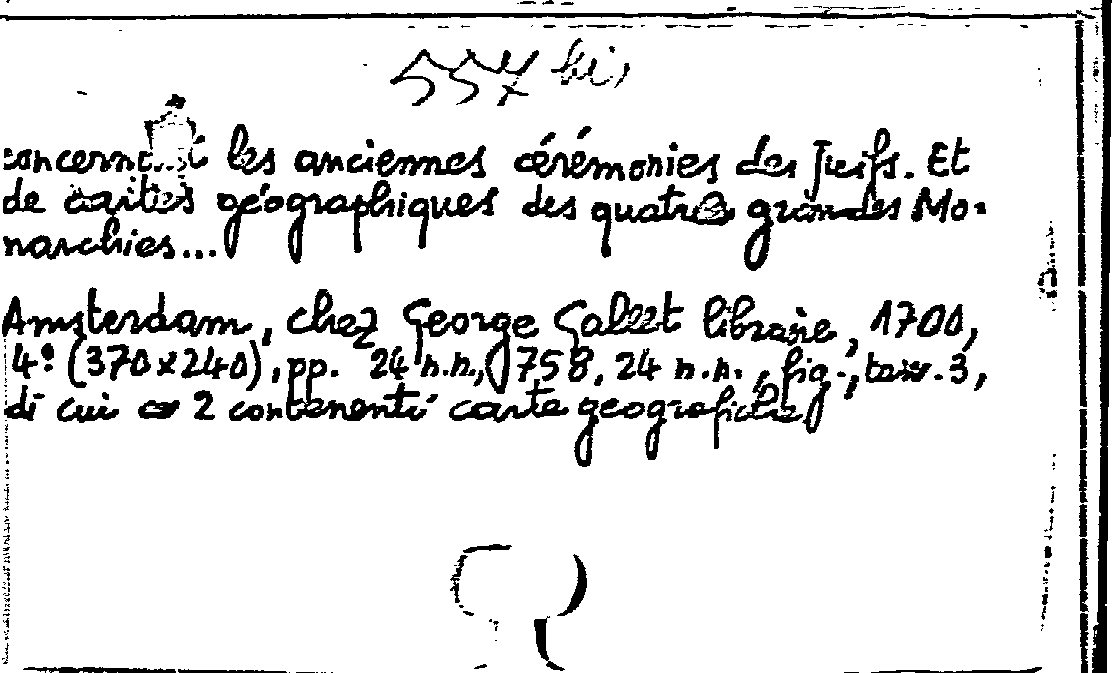 557 bis
concernant les anciennes cérémonies des Juifs. Et
de cartes géographiques des quatre grandes Mo-
narchies...
Amsterdam, chez George Gallet libraire, 1700,
4º (370x240), pp. 24 n.n., 758, 24 n.n., fig., tavv. 3,
di cui 2 contenenti carte geografiche